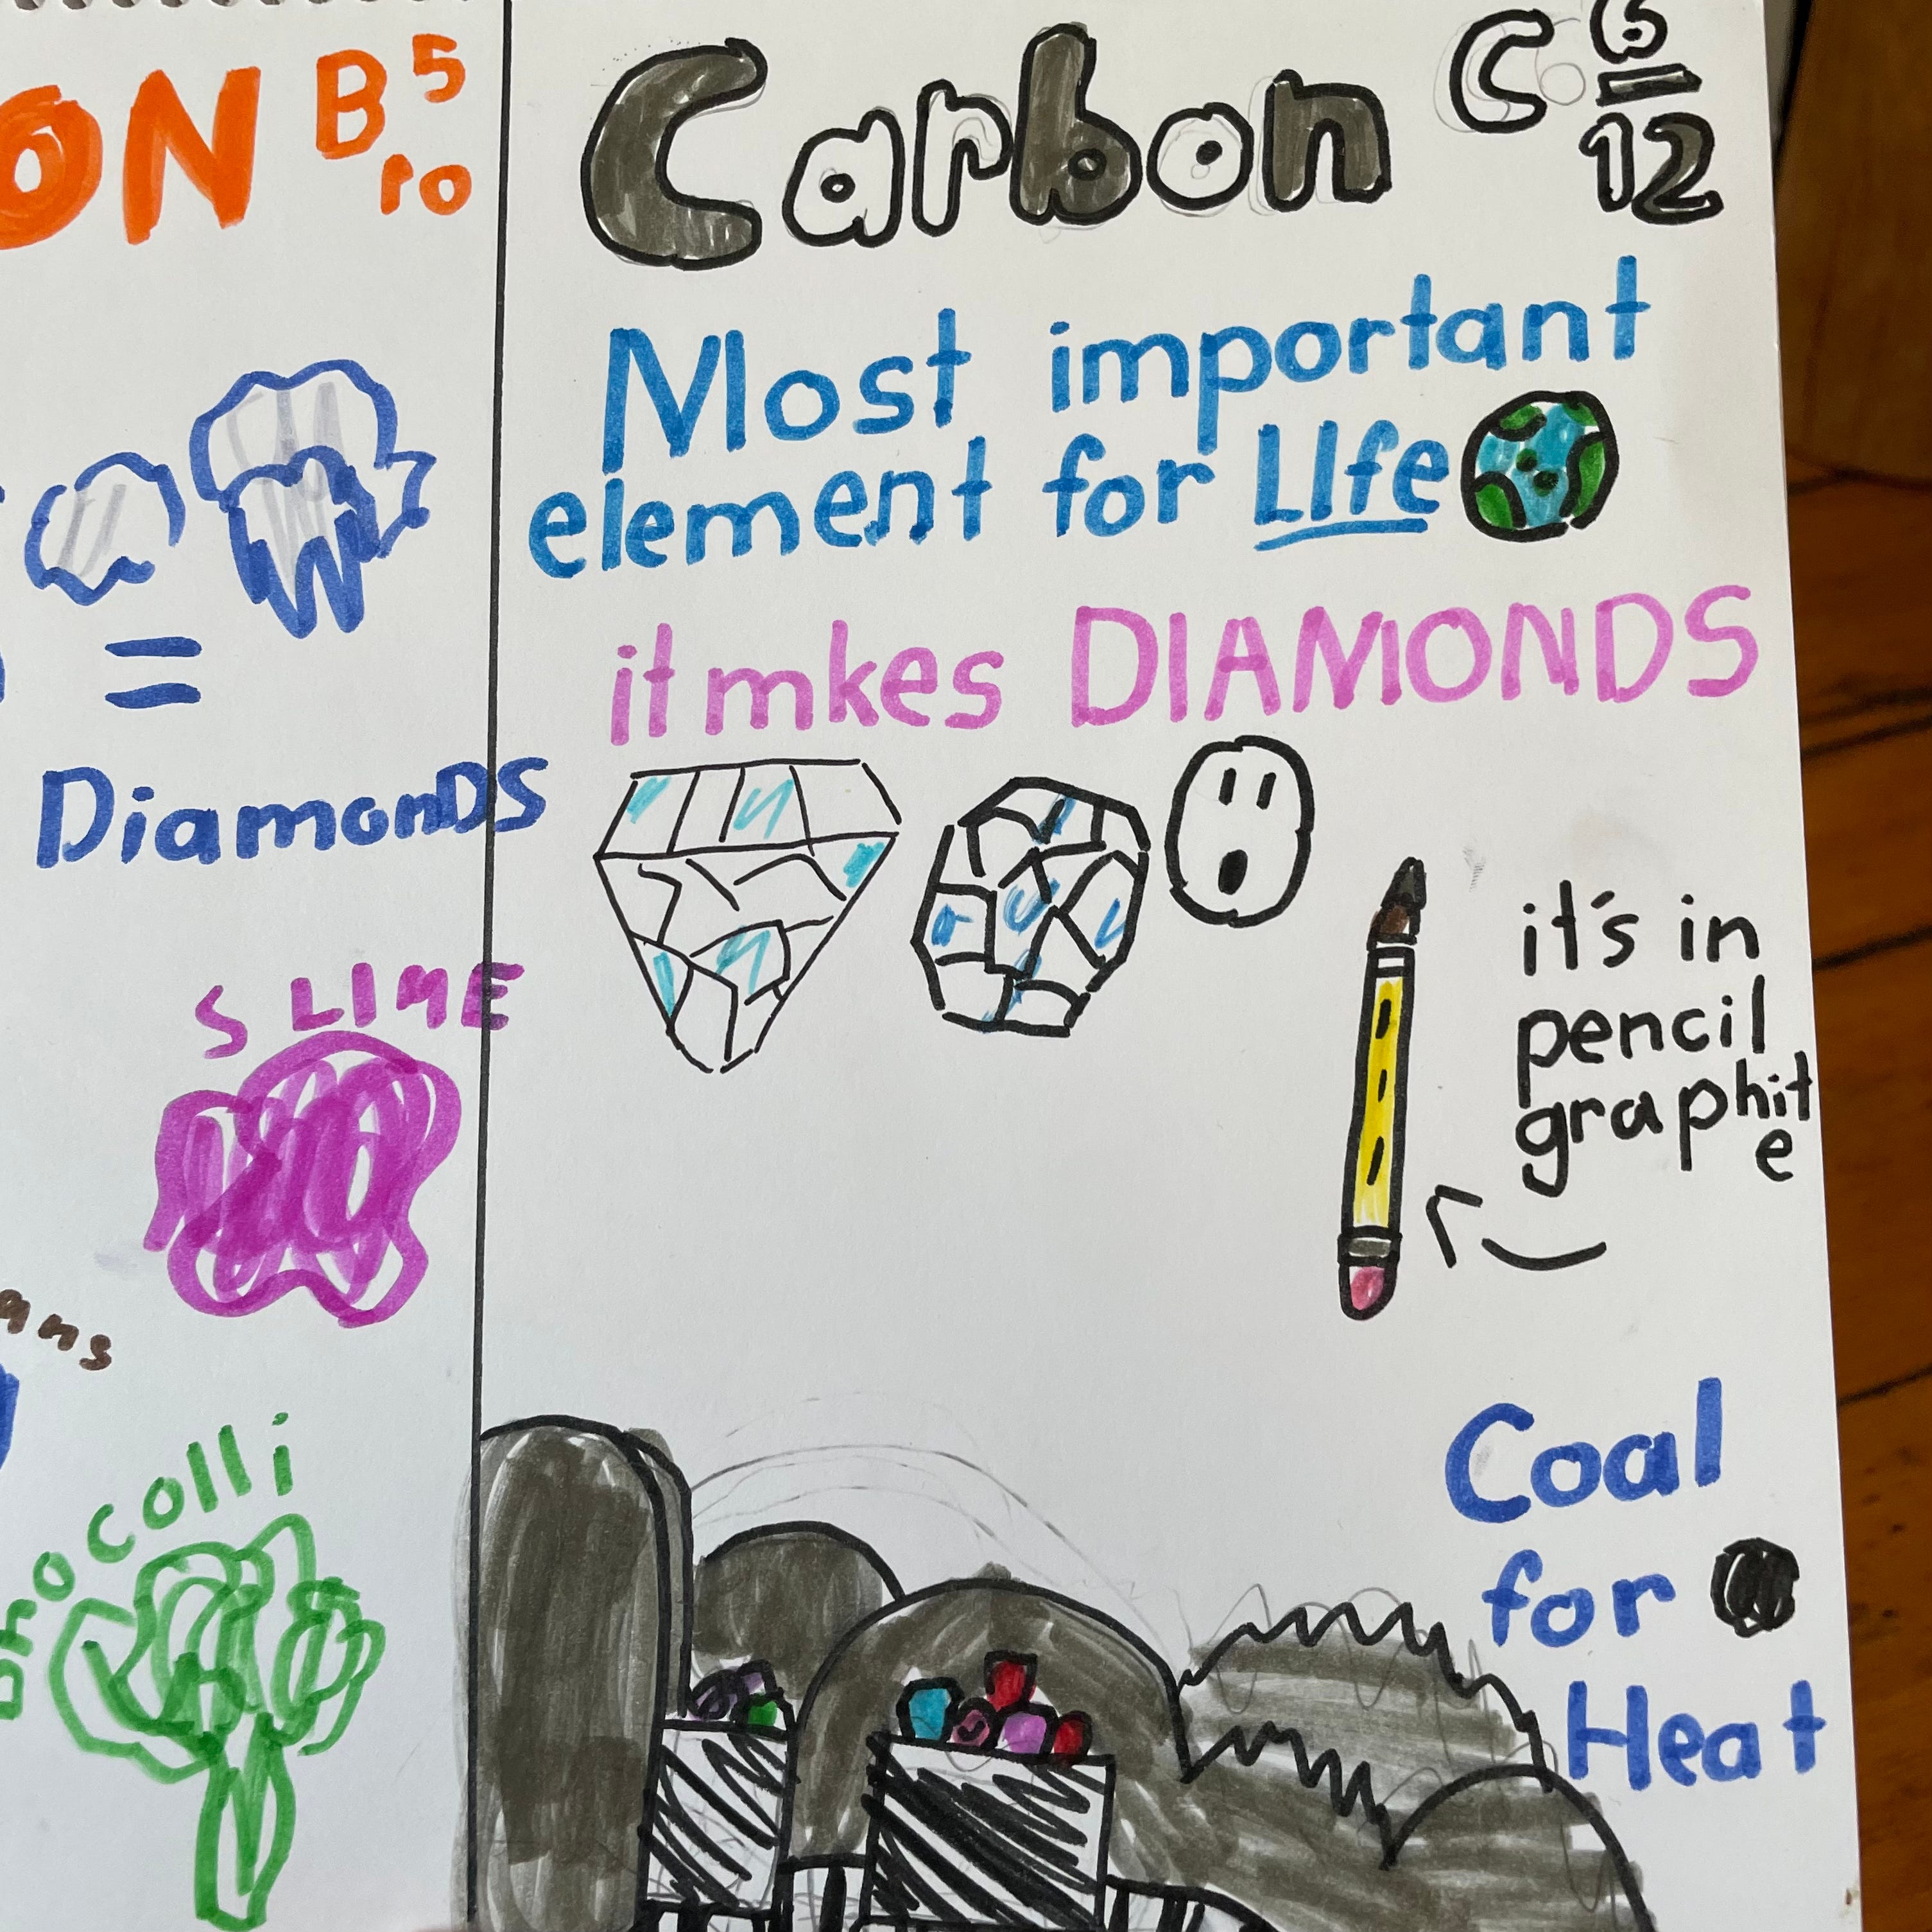 ON B 5
10
=
Diamonds
SLIME
Carbon C 6
12
Most important
element for LIfe
it mkes DIAMONDS
it's in
pencil
graphit
e
Coal
for
Heat